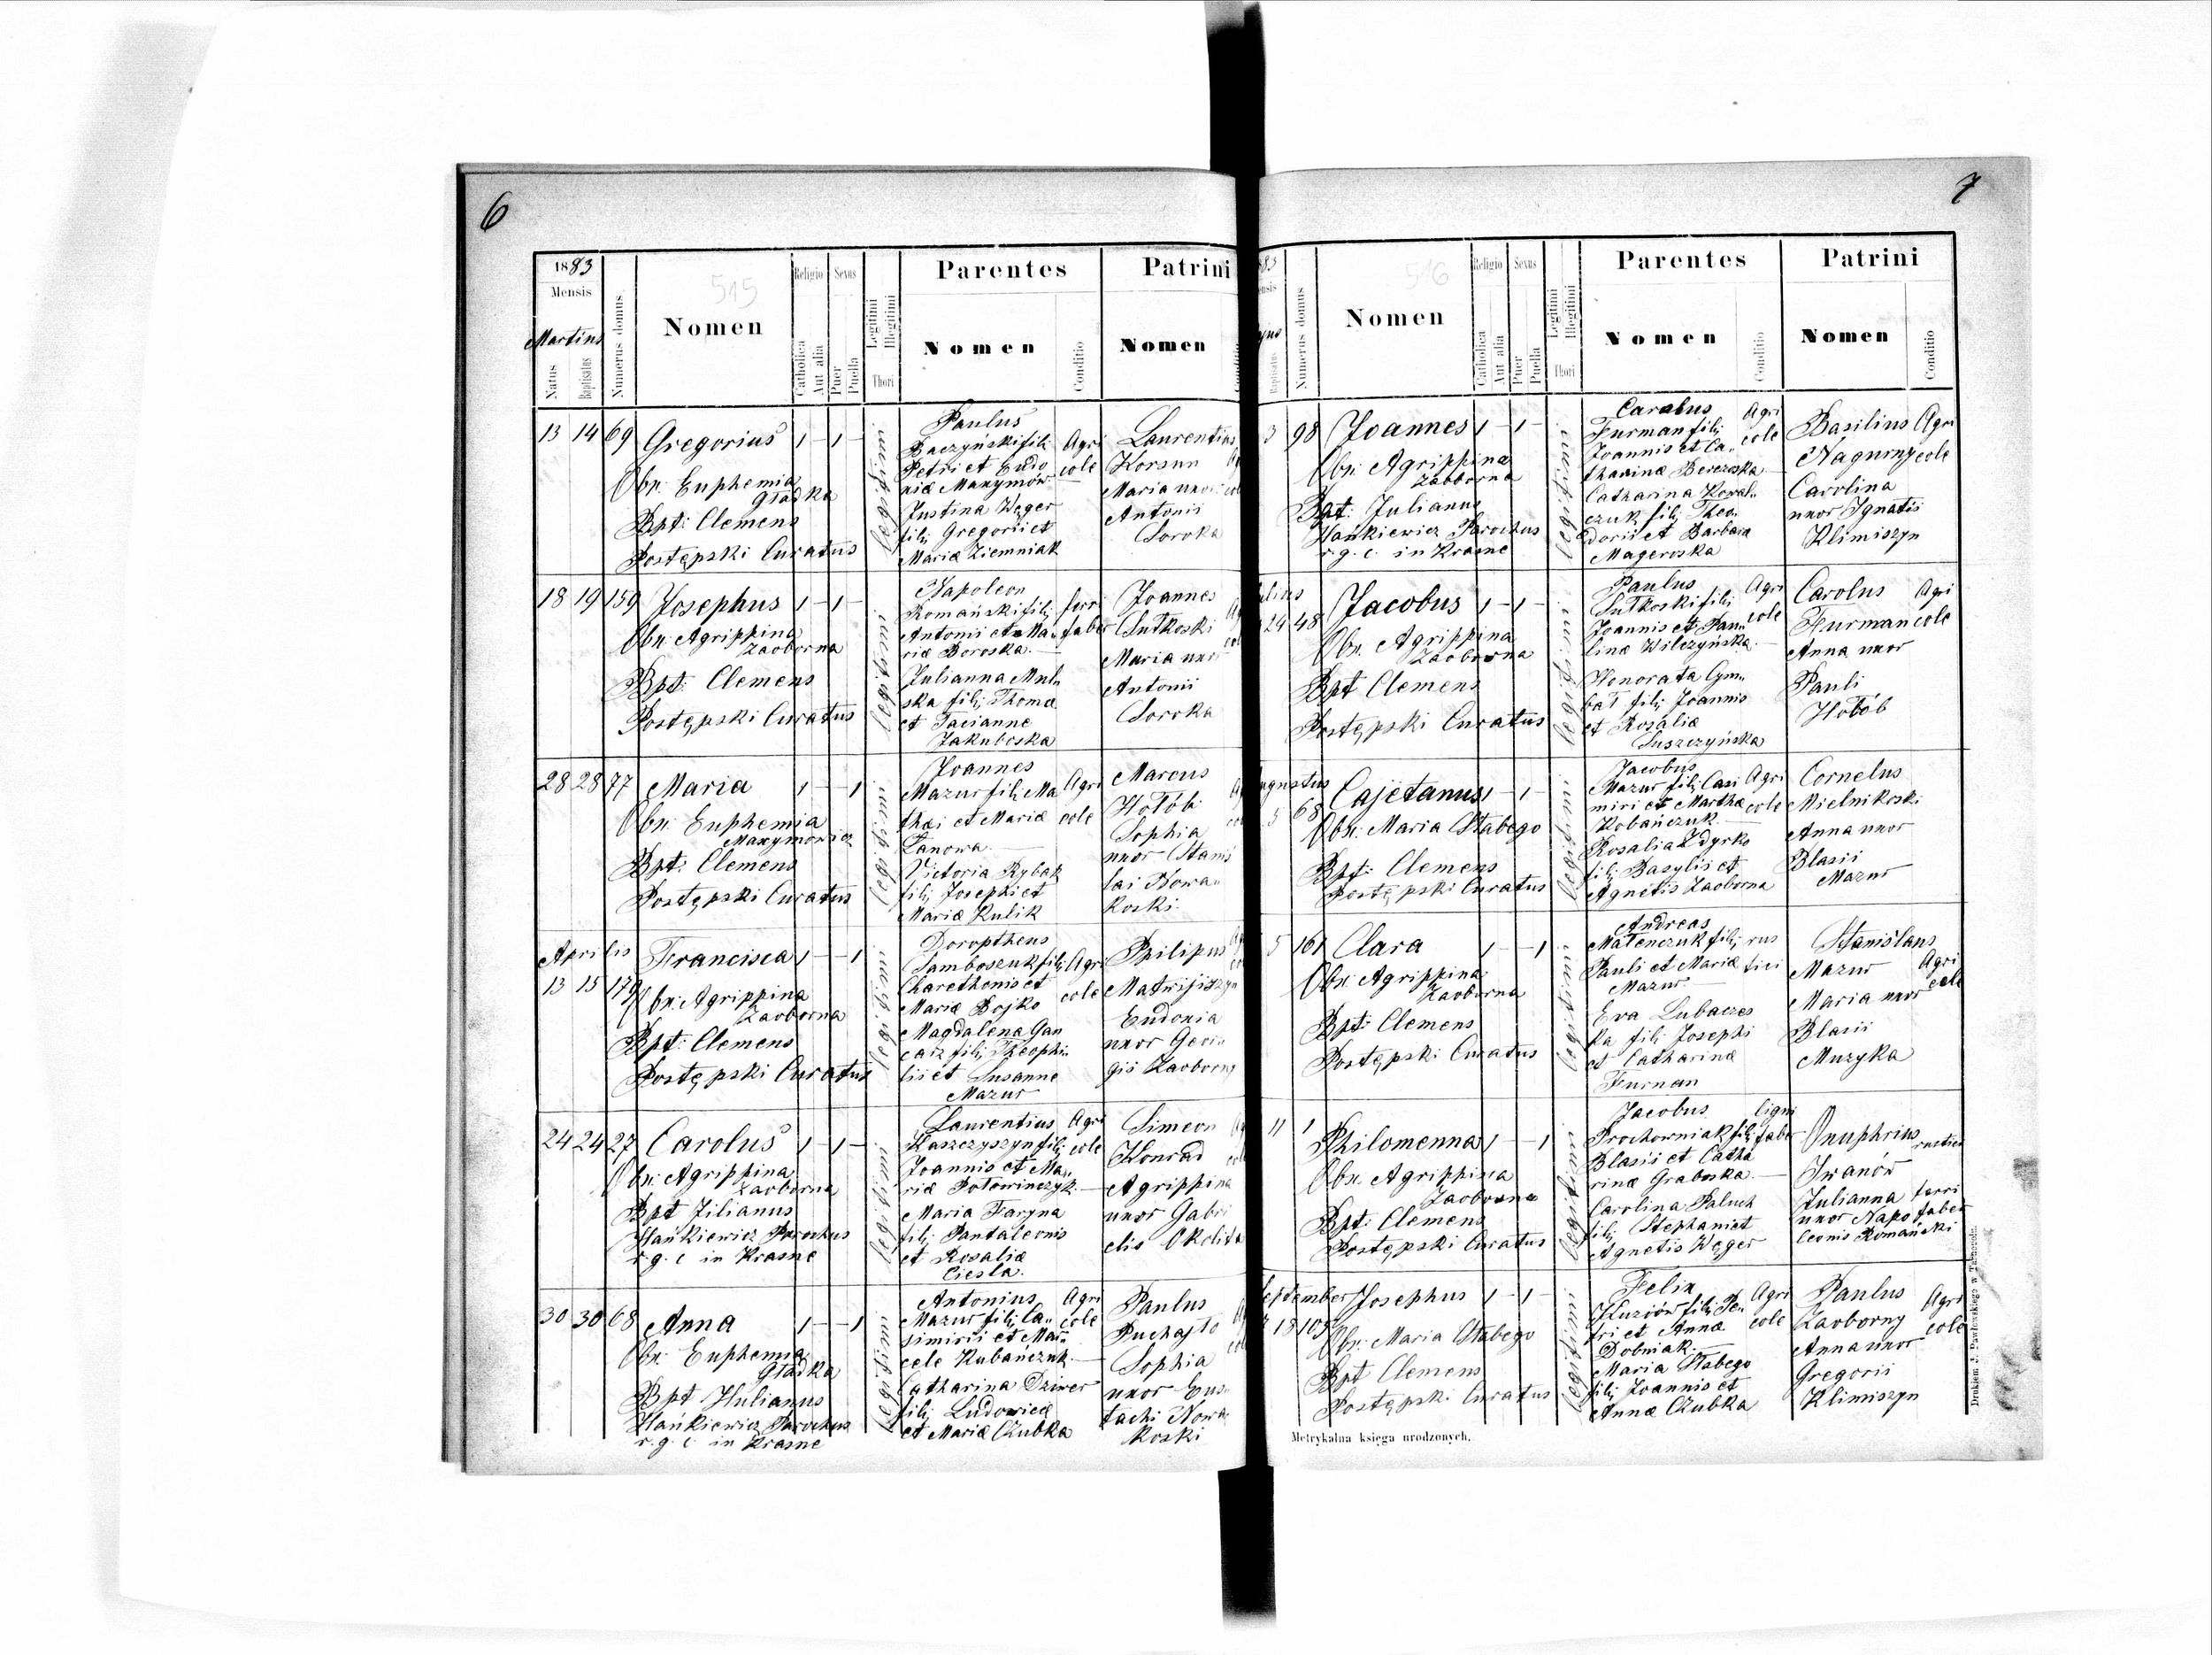 6
1883
Mensis
Martius
Natus
Baptisatus
Numerus domus
515
Nomen
Religio
Catholica
Aut alia
Sexus
Puer
Puella
Legitimi
Illegitimi
Thori
Parentes
Nomen
Conditio
Patrini
Nomen
13 14 69 Gregorius 1 - 1 -
Obn: Euphemia
Gładka
Bpt: Clemens
Postępski Curatus
legitimi
Paulus
Baczyński filj
Petri et Eudo
xiæ Maxymów
Justina Węger
filj Gregorii et
Mariæ Ziemniak
Agri
cole
Laurentius
Korsun
Maria uxor
Antonii
Soroka
18 19 159 Josephus 1 - 1 -
Obn: Agrippina
Zaoborna
Bpt: Clemens
Postępski Curatus
legitimi
Napoleon
Romański filj
Antonii et Ma„
riæ Boroska.
Julianna Mul„
ska filj Thomæ
et Tacianne
Jakuboska
ferri
faber
Joannes
Sutkoski
Maria uxor
Antonii
Soroka
28 28 77 Maria 1 - - 1
Obn: Euphemia
Maxymowicz
Bpt: Clemens
Postępski Curatus
legitimi
Joannes
Mazur filj Ma
thæi et Mariæ
Łanowa.
Victoria Rybak
filj Josephi et
Mariæ Kulik
Agri
cole
Marcus
Hołób
Sophia
uxor Stanis
lai Nowa„
koski.
Aprilis
13 15 179 Francisca 1 - - 1
Obn: Agrippina
Zaoborna
Bpt: Clemens
Postępski Curatus
legitimi
Doroptheus
Samboszuk filj
Charethonis et
Mariæ Bojko
Magdalena Gan
carz filj Theophi„
lii et Susanne
Mazur
Agri
cole
Philipus
Matwijiszyn
Eudonia
uxor Geor„
gii Zaoborny
24 24 27 Carolus 1 - 1 -
Obn: Agrippina
Zaoborna
Bpt Jilianus
Hańkiewicz Parochus
r. g. c in Krasne
legitimi
Laurentius
Kaszczyszyn filj
Joannis et Ma„
riæ Potowinczyk.
Maria Faryna
filj Pantaleonis
et Rosaliæ
Ciesla.
Agri
cole
Simeon
Konrad
Agrippina
uxor Gabri
elis Okolita
30 30 68 Anna 1 - - 1
Obn: Euphemia
Gładka
Bpt Hulianus
Hańkiewicz Parochus
r. g. c. in Krasne
legitimi
Antonius
Mazur filj Ca„
simirii et Mar„
cele Kubańczuk.
Catharina Dziwer
filj Ludovicæ
et Mariæ Czubka
Agri
cole
Paulus
Puchajło
Sophia
uxor Eus„
tachi Nowa
koski
7
Numerus domus
516
Nomen
Religio
Catholica
Aut alia
Sexus
Puer
Puella
Legitimi
Illegitimi
Thori
Parentes
Nomen
Conditio
Patrini
Nomen
Conditio
3 98 Joannes 1 - 1 -
Obn: Agrippina
Zabborna
Bpt: Julianus
Hańkiewicz Parochus
r. g. c. in Krasne
legitimi
Carolus
Furman filj
Joannis et Ca„
tharinæ Berezoska
Catharina Kowal„
czuk filj Theo„
dorii et Barbara
Mageroska
Agri
cole
Basilius
Nagurny
Carolina
uxor Ignatii
Klimiszyn
Agri
cole
24 48 Jacobus 1 - 1 -
Obn: Agrippina
Zaoborna
Bpt Clemens
Postępski Curatus
legitimi
Paulus
Sutkoski filj
Joannis et Pau„
linæ Wilczyńska.
Honorata Cym„
bał filj Joannis
et Rosaliæ
Suszczyńska
Agri
cole
Carolus
Furman
Anna uxor
Pauli
Hołób
Agri
cole
Augustus
5 68 Cajetanus 1 - 1 -
Obn: Maria Stabego
Bpt: Clemens
Postępski Curatus
legitimi
Jacobus
Mazur filj Casi
miri et Marthæ
Kobańczuk.
Rosalia Zdyrko
filj Basylii et
Agnetis Zaoborna
Agri
cole
Cornelus
Mielnikoski
Anna uxor
Blasii
Mazur
5 161 Clara 1 - - 1
Obn: Agrippina
Zaoborna
Bpt: Clemens
Postępski Curatus
legitimi
Andreas
Małenczuk filj
Pauli et Mariæ
Mazur
Eva Lubaczes
ka filj Josephi
et Catharinæ
Furman
rus
tici
Stanislaus
Mazur
Maria uxor
Blasii
Muzyka
Agri
cole
11 1 Philomenna 1 - - 1
Obn: Agrippina
Zaoborna
Bpt: Clemens
Postępski Curatus
legitimi
Jacobus
Prochowniak filj
Blasii et Catha
rinæ Graboska.
Carolina Paluch
filj Stephani et
Agnetis Węger
ligni
faber
Onuphrius
Iwanów
Julianna
uxor Napo
leonis Romański
rustici
ferri
faber
September
18 105 Josephus 1 - 1 -
Obn: Maria Stabego
Bpt Clemens
Postępski Curatus
legitimi
Felix
Kuziów filj Pe„
tri et Annæ
Dobniak.
Maria Stabego
filj Joannis et
Annæ Czubka
Agri
cole
Paulus
Zaoborny
Anna uxor
Gregorii
Klimiszyn
Agri
cole
Metrykalna księga urodzonych.
Drukiem J. Pawłowskiego w Tarnopolu.